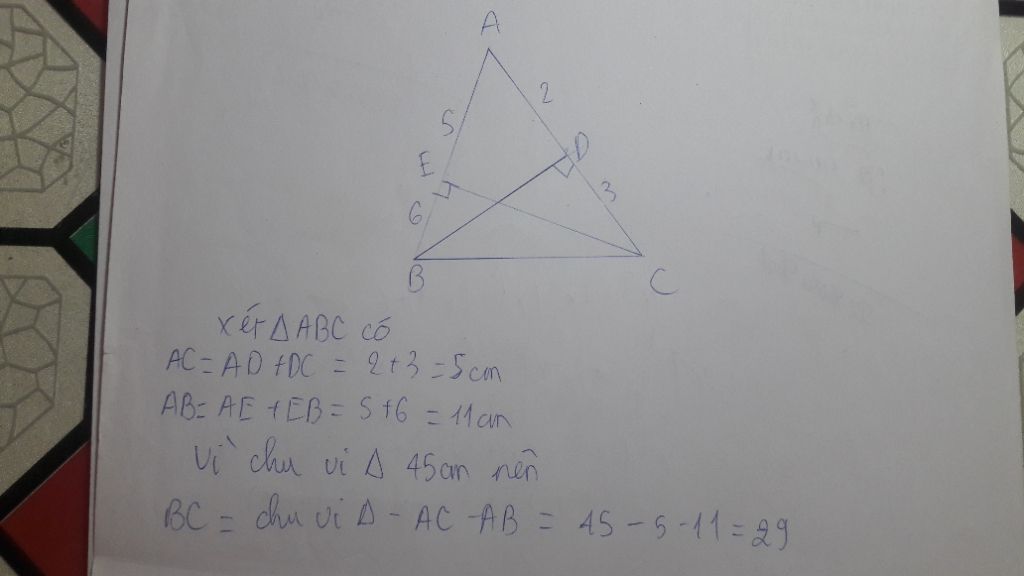 A
2
5
D
E
3
6
B
C
xét ΔABC có
AC = AD + DC = 2+3 = 5cm
AB = AE + EB = 5+6 = 11cm
Vì chu vi Δ 45cm nên
BC = chu vi Δ - AC - AB = 45 - 5 - 11 = 29